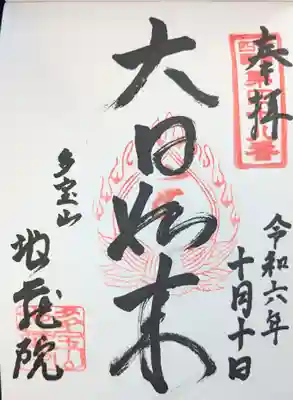 奉拝
令和六年
十月十日
大日如来
多宝山
地蔵院